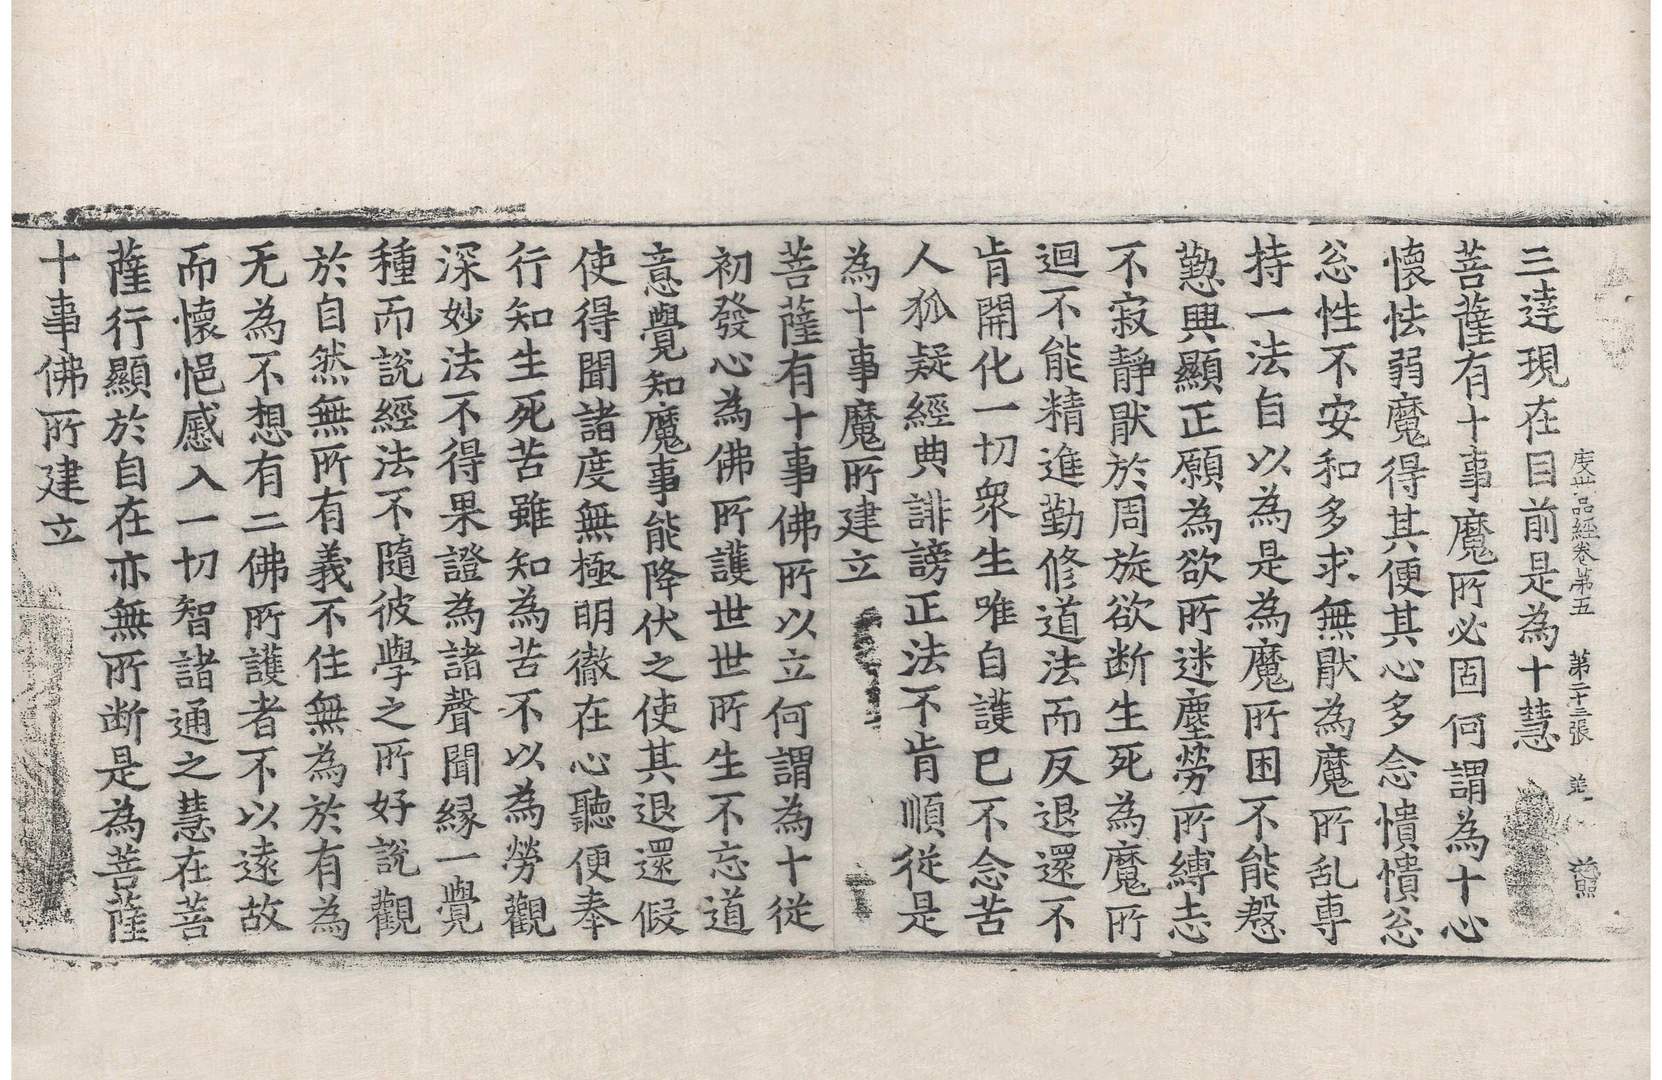 度世品經卷第五　第二十三張
三達現在目前是為十慧
菩薩有十事魔所必固何謂為十心
懷怯弱魔得其便其心多念憒憒忩
忩性不安和多求無猒為魔所乱専
持一法自以為是為魔所困不能慇
懃興顯正願為欲所迷塵勞所縛志
不寂靜猒於周旋欲断生死為魔所
迴不能精進勤修道法而反退還不
肯開化一切衆生唯自護已不念苦
人狐疑經典誹謗正法不肯順従是
為十事魔所建立
菩薩有十事佛所以立何謂為十従
初發心為佛所護世世所生不忘道
意覺知魔事能降伏之使其退還假
使得聞諸度無極明徹在心聽便奉
行知生死苦雖知為苦不以為勞觀
深妙法不得果證為諸聲聞縁一覺
種而說經法不隨彼學之所好說觀
於自然無所有義不住無為於有為
无為不想有二佛所護者不以逺故
而懷悒慼入一切智諸通之慧在菩
薩行顯於自在亦無所断是為菩薩
十事佛所建立